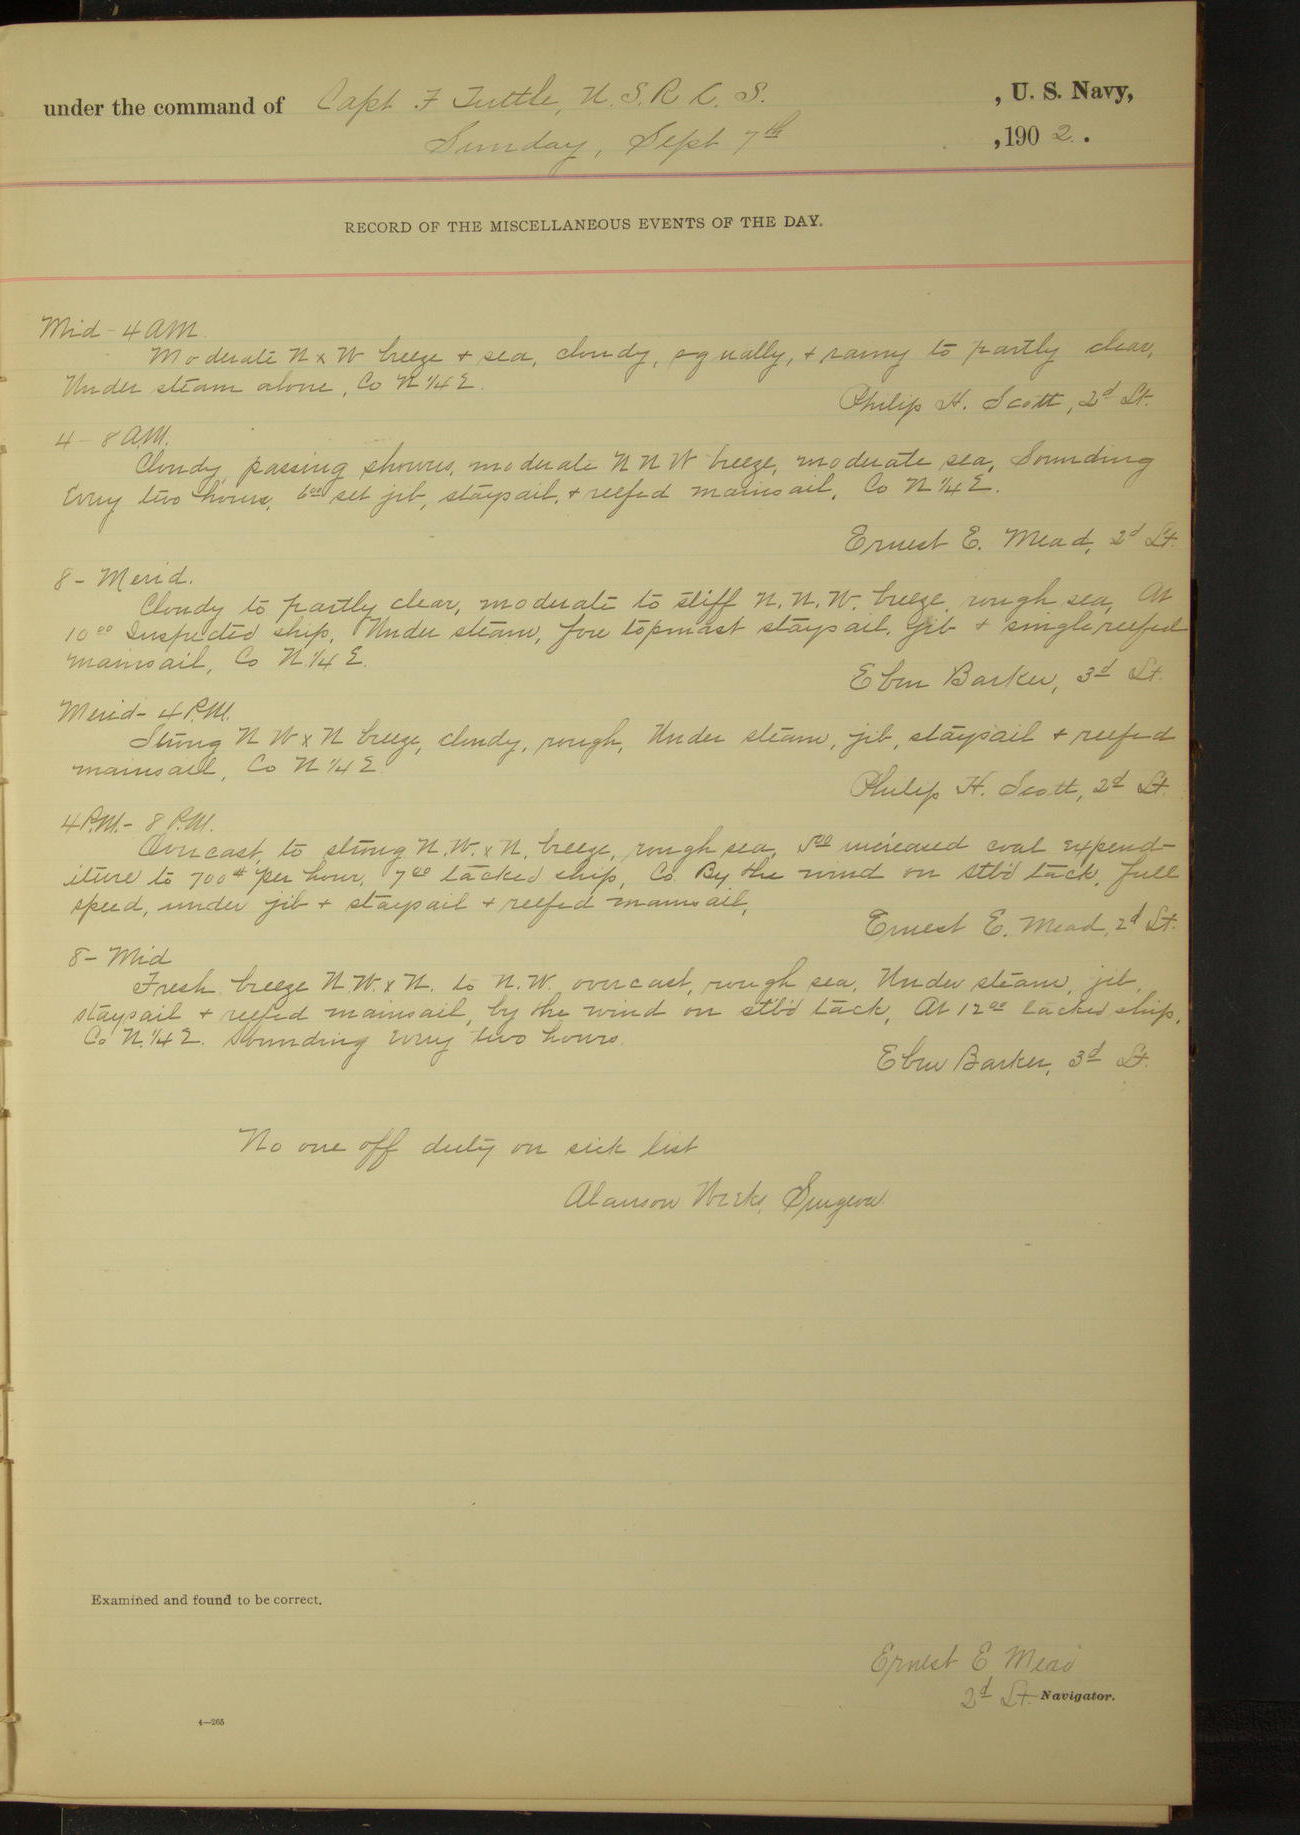 under the command of Capt. F Tuttle, U. S. R. C. S. , U. S. Navy,
Sunday, Sept 7th , 1902.
RECORD OF THE MISCELLANEOUS EVENTS OF THE DAY.
Mid - 4 AM.
Moderate N x W breeze + sea, cloudy, squally, + rainy to partly clear,
Under steam alone, Co N 1/4 E.
Philip H. Scott, 2d Lt.
4 - 8 A.M.
Cloudy, passing showers, moderate N N W breeze, moderate sea, Sounding
every two hours, 6 00 set jib, staysail, + reefed mainsail, Co N 1/4 E.
Ernest E. Mead, 2d Lt.
8 - Merid.
Cloudy to partly clear, moderate to stiff N. N. W. breeze, rough sea, At
10 00 Inspected ship, Under steam, fore topmast staysail, jib + single reefed
mainsail, Co N 1/4 E.
Eben Barker, 3d Lt.
Merid - 4 P.M.
Strong N W x N breeze, cloudy, rough, Under steam, jib, staysail + reefed
mainsail, Co N 1/4 E
Philip H. Scott, 2d Lt.
4 P.M. - 8 P.M.
Overcast, to strong N. W. x N. breeze, rough sea, 5 00 increased coal expend-
iture to 700 # per hour, 7 00 tacked ship, Co. By the wind on stb'd tack, full
speed, under jib + staysail + reefed mainsail,
Ernest E. Mead, 2d Lt.
8 - Mid
Fresh breeze N. W. x N. to N. W. overcast, rough sea, Under steam, jib,
staysail + reefed mainsail, by the wind on stb'd tack, At 12 00 tacked ship,
Co N. 1/4 E. Sounding every two hours.
Eben Barker, 3d Lt.
No one off duty on sick list
Alanson Weeks, Surgeon
Examined and found to be correct.
Ernest E Mead
2d Lt. Navigator.
4—265